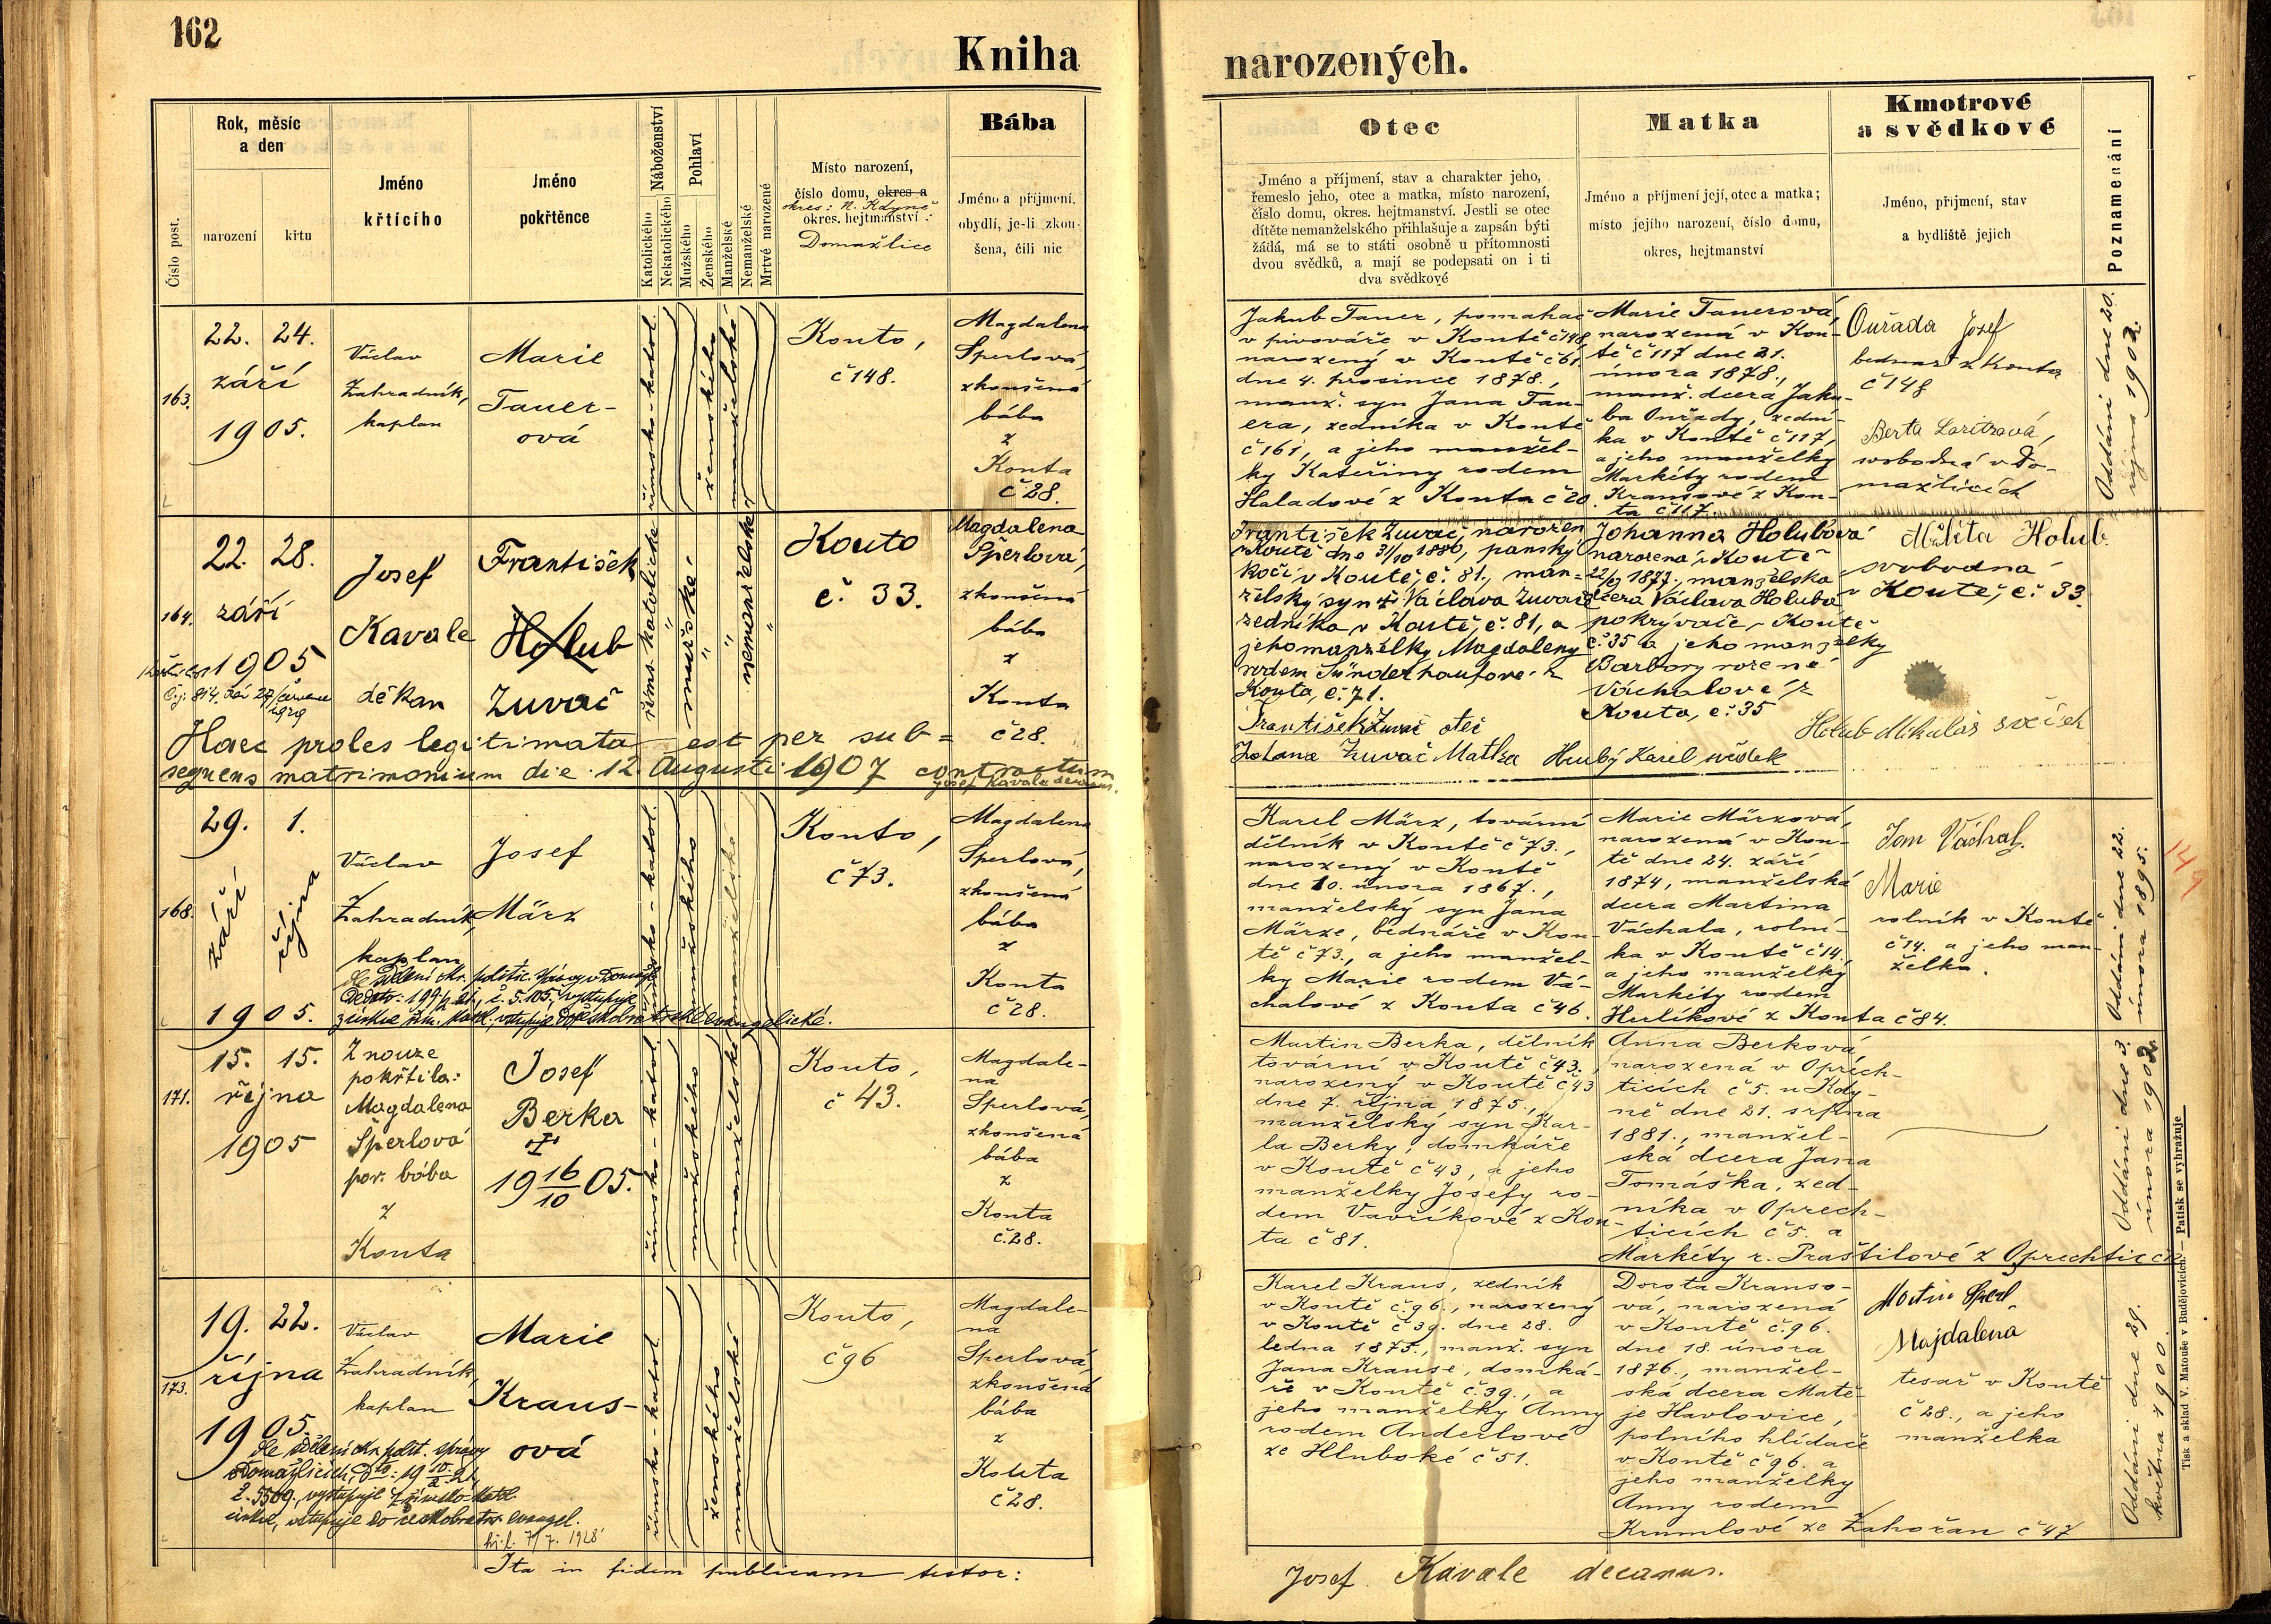 162
Kniha
narozených.
Číslo post.
Rok, měsíc
a den
narození
křtu
Jméno
křtícího
Jméno
pokřtěnce
Náboženství
Katolického
Nekatolického
Pohlaví
Mužského
Ženského
Manželské
Nemanželské
Mrtvé narozené
Místo narození,
číslo domu, okres a
okres: N. Kdyně
okres. hejtmanství :
Domažlice
Bába
Jméno a příjmení,
obydlí, je-li zkou-
šena, čili nic
Otec
Jméno a příjmení, stav a charakter jeho,
řemeslo jeho, otec a matka, místo narození,
číslo domu, okres. hejtmanství. Jestli se otec
dítěte nemanželského přihlašuje a zapsán býti
žádá, má se to státi osobně u přítomnosti
dvou svědků, a mají se podepsati on i ti
dva svědkové
Matka
Jméno a příjmení její, otec a matka;
místo jejího narození, číslo domu,
okres, hejtmanství
Kmotrové
a svědkové
Jméno, příjmení, stav
a bydliště jejich
Poznamenání
163.
22. 24.
září
1905.
Václav
Zahradník,
kaplan
Marie
Tauer-
ová
římsko-katol.
ženského
manželské
Kouto,
č 148.
Magdalena
Šperlová,
zkoušená
bába
z
Kouta
č 28.
Jakub Tauer, pomahač
v pivováře v Koutě č 148,
narozený v Koutě č 61
dne 4. prosince 1878.,
manž. syn Jana Tau-
era, zedníka v Koutě
č 161, a jeho manžel-
ky Kateřiny rodem
Haladové z Kouta č 20.
Marie Tauerová,
narozená v Kou-
tě č 117 dne 21.
února 1878.,
manž. dcera Jaku-
ba Ouřady, zední-
ka v Koutě č 117,
a jeho manželky
Markéty rodem
Krausové z Kou-
ta č 117.
Ouřada Josef
bednář z Kouta
č 148
Berta Loritzová,
svobodná v Do-
mažlicích
Oddáni dne 20.
října 1902.
164.
22. 28.
září
1905
Čj: 814.
Josef
Kavale
děkan
František
Holub
Zuvač
řims. katolické
mužské
nemanželské
Kouto
č. 33.
Magdalena
Šperlová,
zkoušená
bába
z
Kouta
č 28.
Haec proles legitimata est per sub=
sequens matrimonium die 12. Augusti 1907 contractum
Josef Kavale decanus.
František Zuvač, narozen
v Koutě dne 31/10 1880, panský
kočí v Koutě, č. 81., man=
želský syn Václava Zuvače
zedníka v Koutě, č. 81, a
jeho manželky Magdaleny
rodem Sünderhaufové z
Kouta, č. 71.
František Zuvač otec
Johana Zuvač Matka Hrubý Karel svědek
Johanna Holubová
narozená v Koutě
22/9 1877., manželska
dcera Václava Holuba
pokrývače v Koutě
č. 35 a jeho manželky
Barbory rozené
Váchalové z
Kouta, č. 35
Holub.
svobodna
v Koutě, č. 33.
Holub Mikuláš
168.
29. 1.
září
října
1905.
Václav
Zahradník,
kaplan
Josef
März
římsko-katol.
mužského
manželské
Kouto,
č 73.
Magdalena
Šperlová,
zkoušená
bába
z
Kouta
č 28.
Karel März, tovární
dělník v Koutě č 73.,
narozený v Koutě
dne 10. února 1867.,
manželský syn Jana
Märze, bednáře v Kou-
tě č 73., a jeho manžel-
ky Marie rodem Vá-
chalové z Kouta č 46.
Marie Märzová,
narozená v Kou-
tě dne 24. září
1874, manželská
dcera Martina
Váchala, rolní-
ka v Koutě č 14.,
a jeho manželky
Markéty rodem
Hulíkové z Kouta č 84.
Jan Váchal.
Marie
rolník v Koutě
č 14. a jeho man-
želka.
Oddáni dne 22.
února 1895.
171.
15. 15.
října
1905
Z nouze
pokřtila:
Magdalena
Šperlová
por. bába
z
Kouta
Josef
Berka
†
19 16/10 05.
římsko-katol.
mužského
manželské
Kouto,
č 43.
Magdale-
na
Šperlová,
zkoušená
bába
z
Kouta
č. 28.
Martin Berka, dělník
tovární v Koutě č 43.,
narozený v Koutě č 43
dne 7. října 1875.,
manželský syn Kar-
la Berky, domkáře
v Koutě č 43, a jeho
manželky Josefy ro-
dem Vavříkové z Kou-
ta č 81.
Anna Berková,
narozená v Oprech-
ticích č 5. u Kdy-
ně dne 21. srpna
1881., manžel-
ská dcera Jana
Tomáška, zed-
níka v Oprech-
ticích č 5. a
Markéty r. Praštilové z Oprechtic
Oddáni dne 3.
února 1902.
173.
19. 22.
října
1905.
Václav
Zahradník,
kaplan
Marie
Kraus-
ová
římsko-katol.
ženského
manželské
Kouto,
č 96
Magdale-
na
Šperlová,
zkoušená
bába
z
Kouta
č 28.
č. 5509., vystupuje z římsko-katol.
církve, vstupuje do českobratr. evangel.
Karel Kraus, zedník
v Koutě č. 96., narozený
v Koutě č 39. dne 28.
ledna 1875., manž. syn
Jana Krause, domká-
ře v Koutě č. 39., a
jeho manželky Anny
rodem Anderlové
ze Hluboké č 51.
Dorota Krauso-
vá, narozená
v Koutě č. 96.
dne 18. února
1876., manžel-
ská dcera Matě-
je Havlovice,
polního hlídače
v Koutě č 96. a
jeho manželky
Anny rodem
Krumlové ze Zahořan č 47
Martin Šperl.
Majdalena
tesař v Koutě
č 28., a jeho
manželka
Oddáni dne 29.
května 1900.
Ita in fidem publicam testor:
Josef Kavale decanus.
Tisk a sklad V. Matouše v Budějovicích. — Patisk se vyhražuje